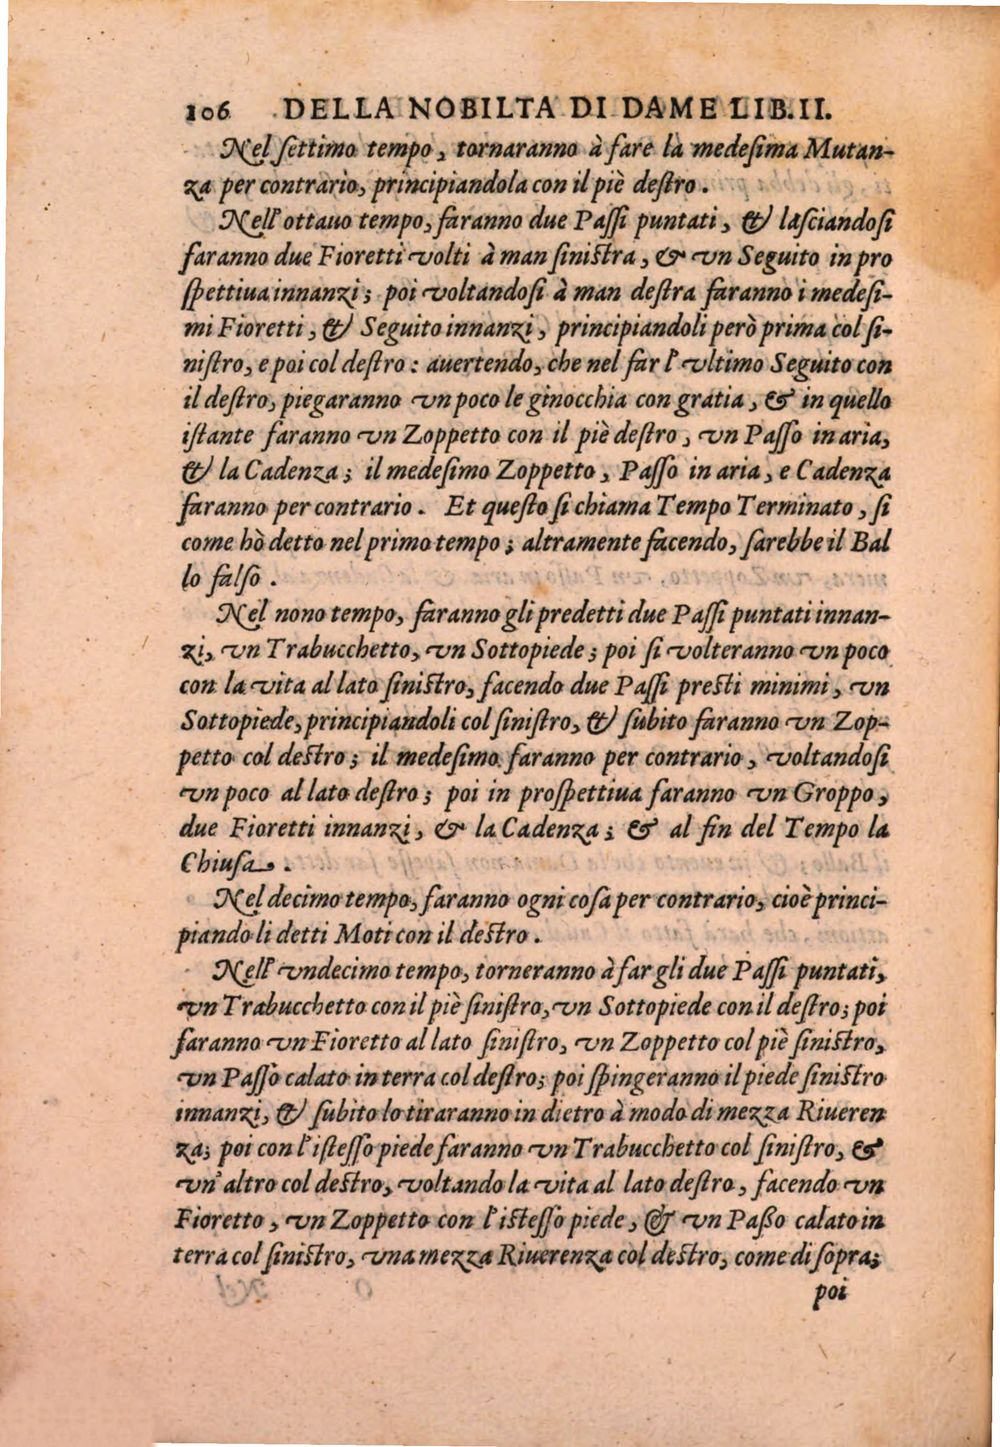 106 DELLA NOBILTA DI DAME LIB. II.
Nel settimo tempo, tornaranno à fare la medesima Mutan-
za per contrario, principiandola con il piè destro.
Nell'ottauo tempo, faranno due Passi puntati, & lasciandosi
faranno due Fioretti volti à man sinistra, & vn Seguito in pro
spettiua innanzi; poi voltandosi à man destra faranno i medesi-
mi Fioretti, & Seguito innanzi, principiandoli però prima col si-
nistro, e poi col destro: auertendo, che nel far l'vltimo Seguito con
il destro, piegaranno vn poco le ginocchia con gratia, & in quello
istante faranno vn Zoppetto con il piè destro, vn Passo in aria,
& la Cadenza; il medesimo Zoppetto, Passo in aria, e Cadenza
faranno per contrario. Et questo si chiama Tempo Terminato, si
come hò detto nel primo tempo; altramente facendo, sarebbe il Bal
lo falso.
Nel nono tempo, faranno gli predetti due Passi puntati innan-
zi, vn Trabucchetto, vn Sottopiede; poi si volteranno vn poco
con la vita al lato sinistro, facendo due Passi presti minimi, vn
Sottopiede, principiandoli col sinistro, & subito faranno vn Zop-
petto col destro; il medesimo faranno per contrario, voltandosi
vn poco al lato destro; poi in prospettiua faranno vn Groppo,
due Fioretti innanzi, & la Cadenza; & al fin del Tempo la
Chiusa.
Nel decimo tempo, faranno ogni cosa per contrario, cioè princi-
piando li detti Moti con il destro.
Nell'vndecimo tempo, torneranno à far gli due Passi puntati,
vn Trabucchetto con il piè sinistro, vn Sottopiede con il destro; poi
faranno vn Fioretto al lato sinistro, vn Zoppetto col piè sinistro,
vn Passo calato in terra col destro; poi spingeranno il piede sinistro
innanzi, & subito lo tiraranno in dietro à modo di mezza Riueren
za; poi con l'istesso piede faranno vn Trabucchetto col sinistro, &
vn'altro col destro, voltando la vita al lato destro, facendo vn
Fioretto, vn Zoppetto con l'istesso piede, & vn Passo calato in
terra col sinistro, vna mezza Riuerenza col destro, come di sopra;
poi